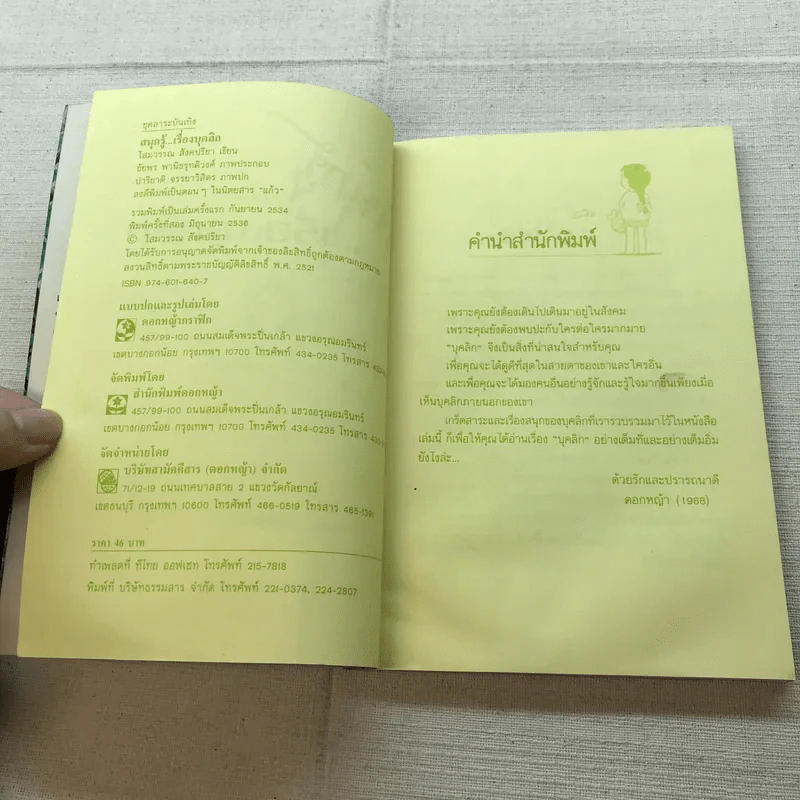 ชุดสาระบันเทิง
สนุกรู้...เรื่องบุคลิก
โสมวรรณ สังคปรียา เขียน
ชัยพร พานิชรุทติวงศ์ ภาพประกอบ
ปาริชาติ จรรยาวิสิตร ภาพปก
ลงตีพิมพ์เป็นตอนๆ ในนิตยสาร "แก้ว"
รวมพิมพ์เป็นเล่มครั้งแรก กันยายน 2534
พิมพ์ครั้งที่สอง มิถุนายน 2536
© โสมวรรณ สังคปรียา
โดยได้รับการอนุญาตจัดพิมพ์จากเจ้าของลิขสิทธิ์ถูกต้องตามกฎหมาย
สงวนสิทธิ์ตามพระราชบัญญัติลิขสิทธิ์ พ.ศ. 2521
ISBN 974-601-640-7
แบบปกและรูปเล่มโดย
ดอกหญ้ากราฟิก
457/99-100 ถนนสมเด็จพระปิ่นเกล้า แขวงอรุณอมรินทร์
เขตบางกอกน้อย กรุงเทพฯ 10700 โทรศัพท์ 434-0235 โทรสาร
จัดพิมพ์โดย
สำนักพิมพ์ดอกหญ้า
457/99-100 ถนนสมเด็จพระปิ่นเกล้า แขวงอรุณอมรินทร์
เขตบางกอกน้อย กรุงเทพฯ 10700 โทรศัพท์ 434-0235 โทรสาร
จัดจำหน่ายโดย
บริษัทสามัคคีสาร (ดอกหญ้า) จำกัด
71/12-19 ถนนเทศบาลสาย 2 แขวงวัดกัลยาณ์
เขตธนบุรี กรุงเทพฯ 10600 โทรศัพท์ 466-0519 โทรสาร 465-1391
ราคา 46 บาท
ทำเพลตที่ ทีไทย ออฟเซท โทรศัพท์ 215-7818
พิมพ์ที่ บริษัทธรรมสาร จำกัด โทรศัพท์ 221-0374, 224-2807
คำนำสำนักพิมพ์
เพราะคุณยังต้องเดินไปเดินมาอยู่ในสังคม
เพราะคุณยังต้องพบปะกับใครต่อใครมากมาย
"บุคลิก" จึงเป็นสิ่งที่น่าสนใจสำหรับคุณ
เพื่อคุณจะได้ดูดีที่สุดในสายตาของเขาและใครอื่น
และเพื่อคุณจะได้มองคนอื่นอย่างรู้จักและรู้ใจมากขึ้นเพียงเมื่อ
เห็นบุคลิกภายนอกของเขา
เกร็ดสาระและเรื่องสนุกของบุคลิกที่เรารวบรวมมาไว้ในหนังสือ
เล่มนี้ ก็เพื่อให้คุณได้อ่านเรื่อง "บุคลิก" อย่างเต็มที่และอย่างเต็มอิ่ม
ยังไงล่ะ...
ด้วยรักและปรารถนาดี
ดอกหญ้า (1988)